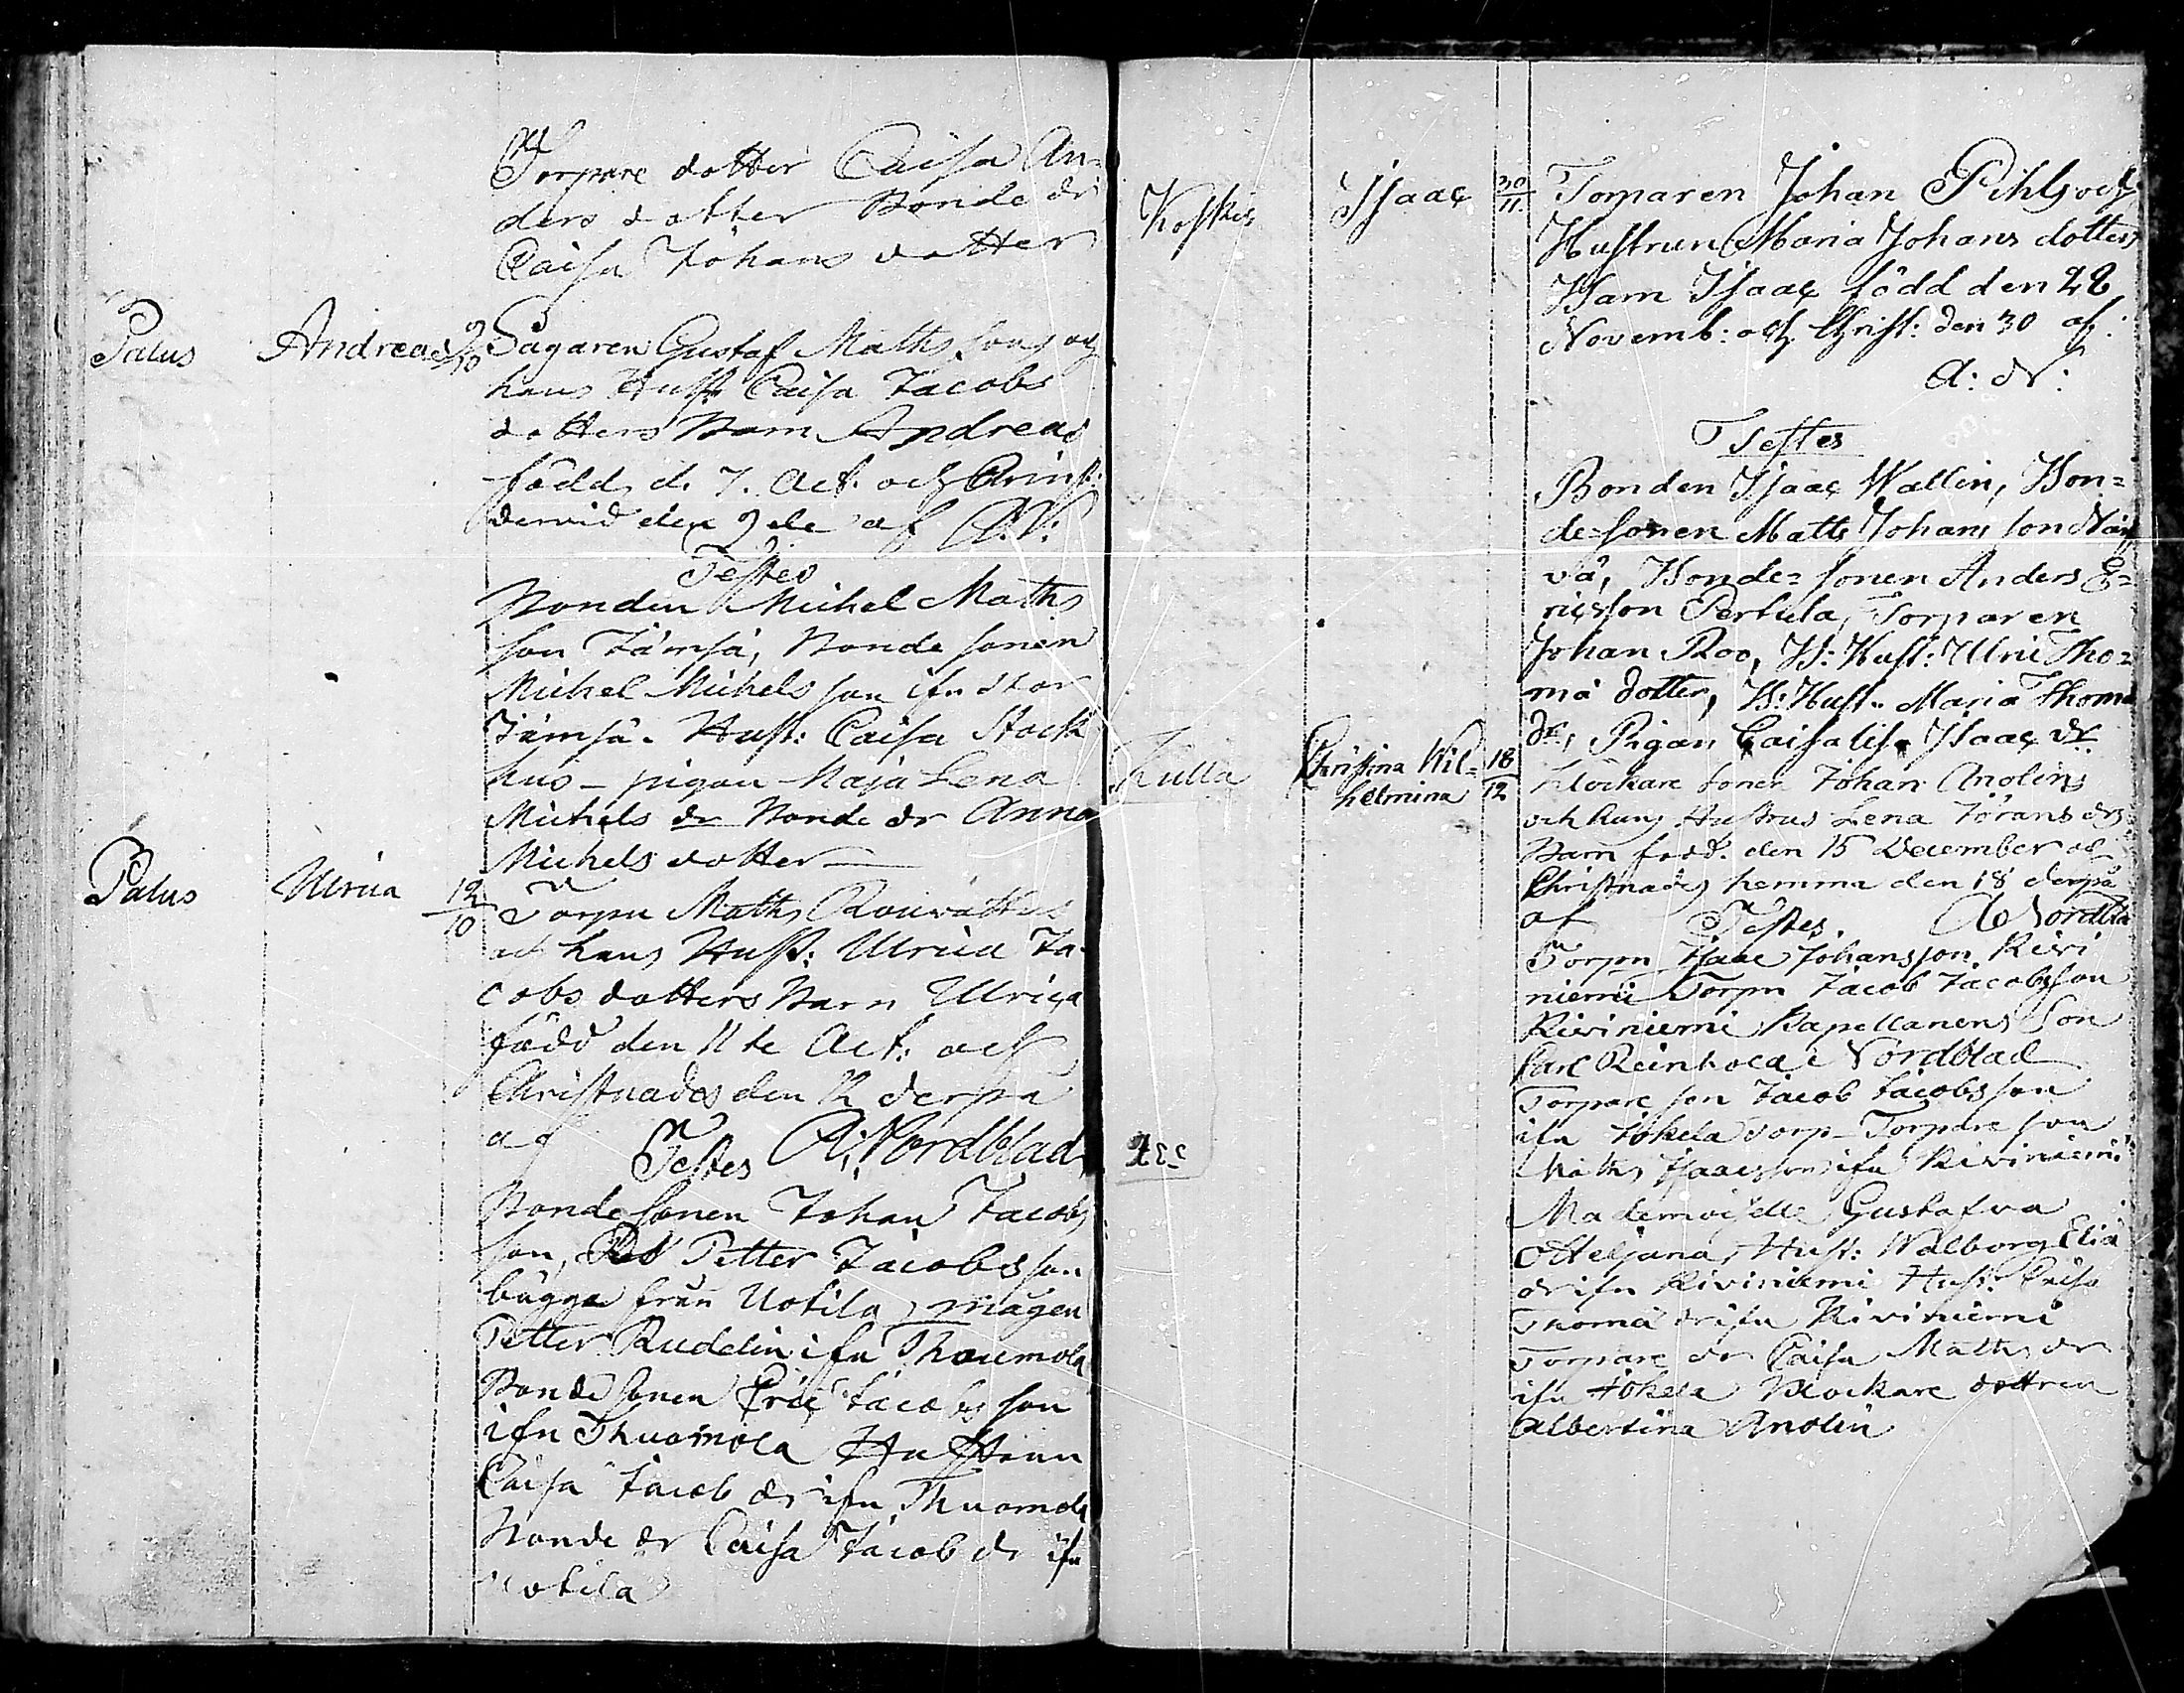 Torpare dotter Caisa An=
ders dotter Bonde dr
Caisa Johans dotter
Palus Andreas 9/10 Sågaren Gustaf Maths son och
hans Hust: Caisa Jacobs
dotters Barn Andreas
född d. 7. Oct. och Christ:
den 9de af A. N:
Testes
Bonden Michel Maths
son Jämsä, Bonde sonen
Michel Michels son ifrn Stor
Jämsä. Hust: Caisa Stock
hus – pigan Maja Lena
Michels dr Bonde dr Anna
Michels dotter
Palus Ulrica 12/10 Torpn Maths
och hans Hust: Ulrica Ja
cobs dotters Barn Ulrica
född den 11te Oct: och
Christnades den 12 derpå
af A: Nordblad
Testes
Bonde sonen Johan Jacobs
son, Petter Jacobs son
bägge från Uotila, mågen
Petter Rudelin ifrn Thuomola
Bonde sonen Eric Jacobs son
ifrn Thuomola Hustrun
Caisa Jacob dr ifrn Thuomola
Bonde dr Caisa Jacob dr ifrn
Uotila
Koskis Isaac 30/11 Torparen Johan Pihls och
Hustrun Maria Johans dotters
Barn Isaac född den 28
Novemb: och Christ: den 30 af:
A: N:
Testes
Bonden Isaac Wallin, Bon=
de sonen Matts Johans son
Bonde=sonen Anders E=
ricsson Pertula, Torparen
Johan Roo, B: Hust: Ulric Tho=
mä dotter, B: Hust. Maria Thomä
dr, Pigan Caisa Lisa Isaac dr
Kulla Christina Wil=
helmina 18/12 Klockare sonen Johan Anolins
och hans Hustrus Lena Jörans drs
Barn född. den 15 December och
Christnades hemma den 18 derpå
af A Nordblad
Testes.
Torpn Isaac Johansson Kivi
niemi Torpn Jacob Jacobsson
Kiviniemi Kapellanens Son
Carl Reinhold Nordblad
Torpare son Jacob Jacobs son
ifrn Jokela torp – Torpare son
Maths Isaacsson ifrn Kiviniemi
Mademoiselle Gustafva
Otteljana, Hust: Walborg Eliä
dr ifrn Kiviniemi Hust: Caisa
Thomä dr ifrn Kiviniemi
Torpare dr Caisa Maths dr
ifrn Jokela Klockare dottren
Albertina Anolin